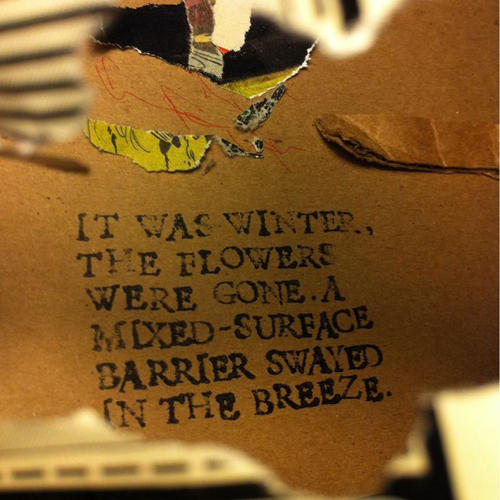 IT WAS WINTER,
THE FLOWERS
WERE GONE. A
MIXED-SURFACE
BARRIER SWAYED
IN THE BREEZE.